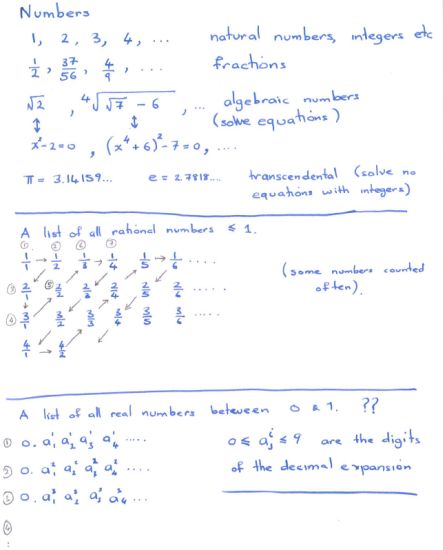 Numbers
1, 2, 3, 4, ... natural numbers, integers etc
1/2, 37/56, 4/9, .... fractions
√2, ⁴√(√7 - 6), ... algebraic numbers
↕ ↕ (solve equations)
x²-2=0, (x⁴+6)²-7=0, ....
π = 3.14159... e = 2.7818.... transcendental (solve no
equations with integers)
A list of all rational numbers ≤ 1.
① ② ⑥ ⑦
1/1 → 1/2 1/3 → 1/4 1/5 → 1/6 .....
(some numbers counted
often).
③ 2/1 ⑤ 2/2 2/3 2/4 2/5 2/6 .....
④ 3/1 3/2 3/3 3/4 3/5 3/6 .....
4/1 → 4/2
A list of all real numbers between 0 & 1. ??
① 0. a₁¹ a₂¹ a₃¹ a₄¹ ..... 0 ≤ aⱼⁱ ≤ 9 are the digits
② 0. a₁² a₂² a₃² a₄² .... of the decimal expansion
③ 0. a₁³ a₂³ a₃³ a₄³ ...
④
: